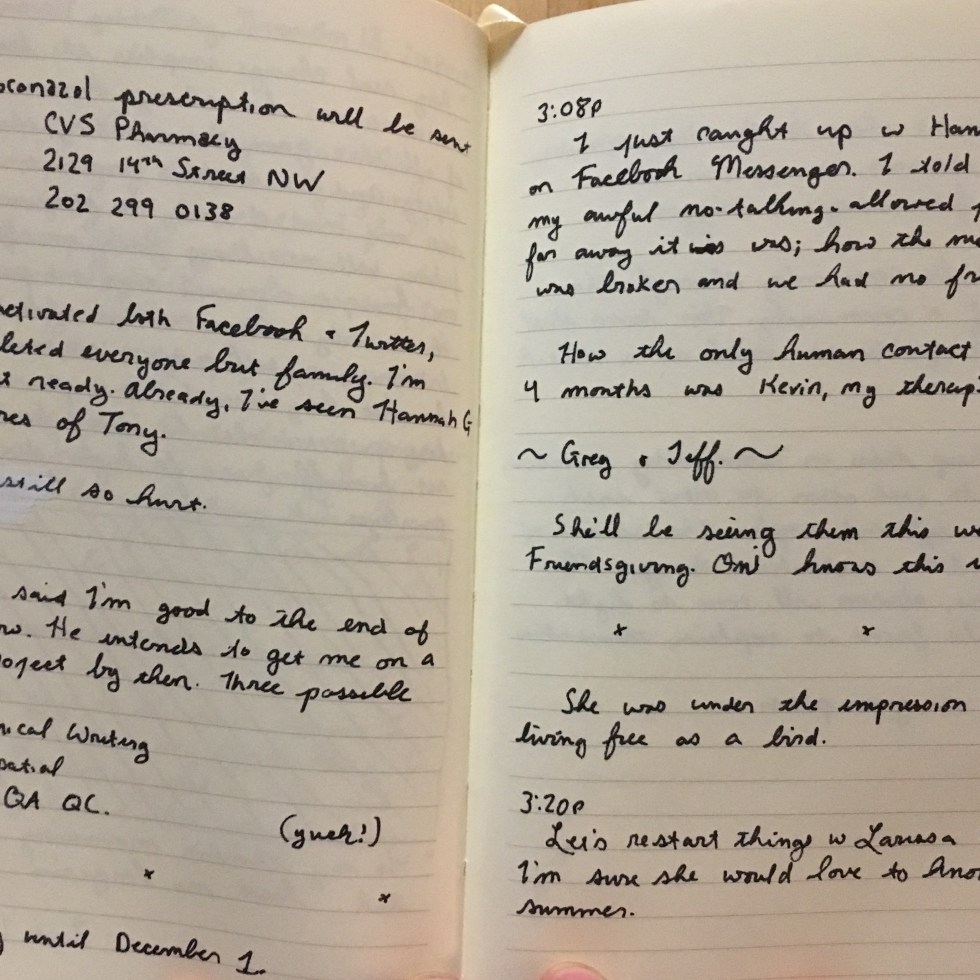 oconazol prescription will be sent
CVS PHarmacy
2129 14th Street NW
202 299 0138
activated both Facebook & Twitter,
leted everyone but family. I'm
t ready. Already, I've seen Hannah G
res of Tony.
still so hurt.
said I'm good to the end of
w. He intends to get me on a
oject by then. Three possible
nical Writing
patial
QA QC.
(yuck!)
x x
g until December 1.
3:08p
I just caught up w Han
on Facebook Messenger. I told
my awful no-talking-allowed
far away it was; how the me
was broken and we had no fr
How the only human contact
4 months was Kevin, my therap
~ Greg & Jeff. ~
She'll be seeing them this we
Friendsgiving. Omi knows this
x x
She was under the impression
living free as a bird.
3:20p
Let's restart things w Larissa
I'm sure she would love to kno
summer.